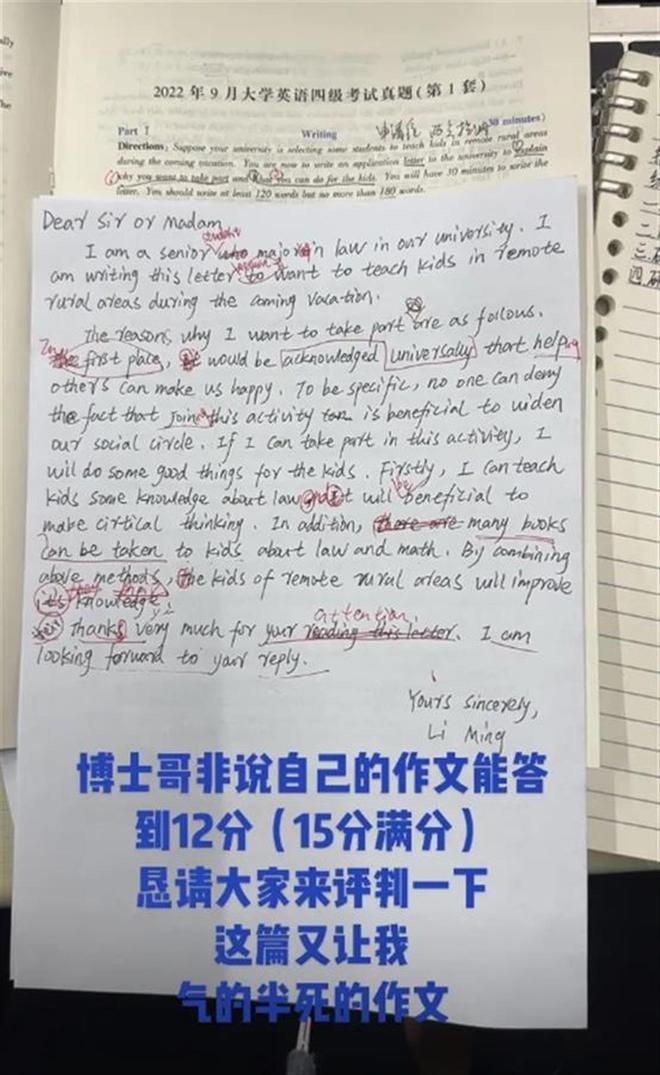 2022年9月大学英语四级考试真题(第1套)
Part I Writing (30 minutes)
Directions: Suppose your university is selecting some students to teach kids in remote rural areas
during the coming vacation. You are now to write an application letter to the university to explain
why you want to take part and what you can do for the kids. You will have 30 minutes to write the
letter. You should write at least 120 words but no more than 180 words.
Dear Sir or Madam,
student
I am a senior who major in law in our university. I
am writing this letter to want to teach kids in remote
rural areas during the coming vacation.
The reasons why I want to take part are as follows.
In the first place, it would be acknowledged universally that helping
others can make us happy. To be specific, no one can deny
the fact that joining this activity is beneficial to widen
our social circle. If I can take part in this activity, I
will do some good things for the kids. Firstly, I can teach
kids some knowledge about law and it will be beneficial to
make cirtical thinking. In addition, there are many books
can be taken to kids about law and math. By combining
above methods, the kids of remote rural areas will improve
its knowledge.
attention
Thanks very much for your reading this letter. I am
looking forward to your reply.
Yours sincerely,
Li Ming
博士哥非说自己的作文能答
到12分(15分满分)
恳请大家来评判一下
这篇又让我
气的半死的作文